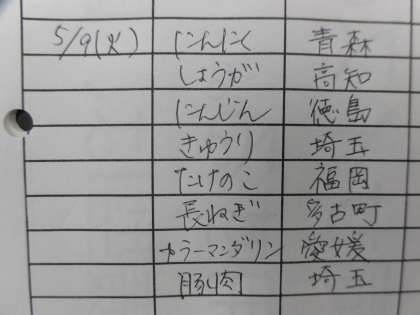 5/9(火) にんにく 青森
しょうが 高知
にんじん 徳島
きゅうり 埼玉
たけのこ 福岡
長ねぎ 多古町
カラーマンダリン 愛媛
豚肉 埼玉